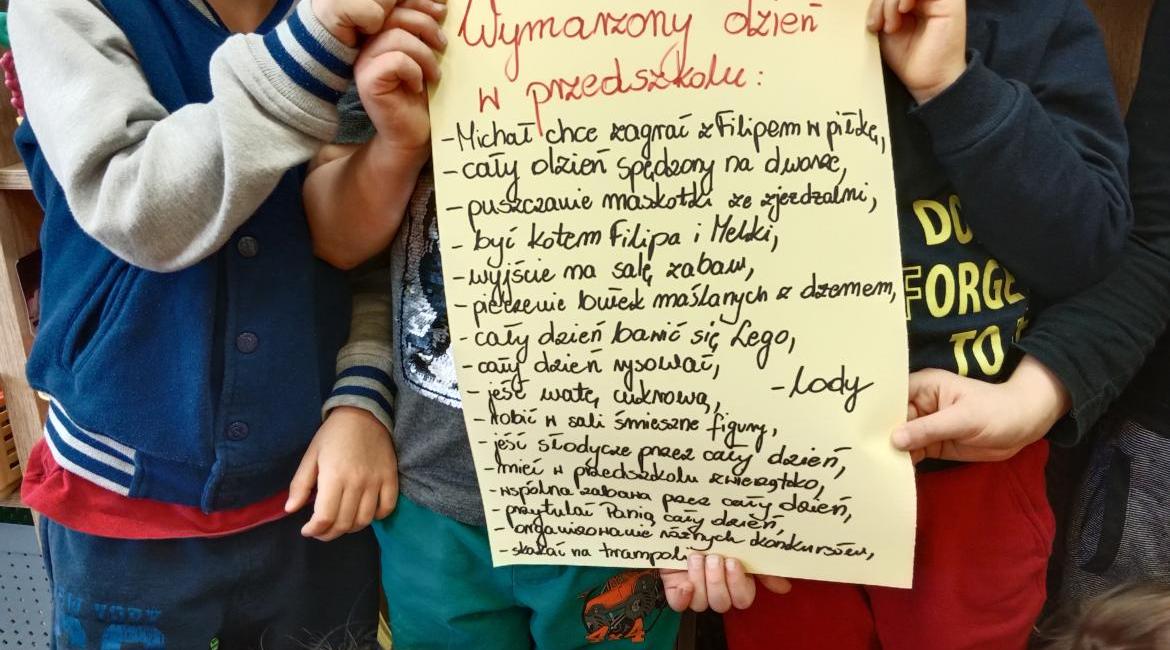 Wymarzony dzień
w przedszkolu:
-Michał chce zagrać z Filipem w piłkę,
-cały dzień spędzony na dworze,
-puszczanie maskotki ze zjeżdżalni,
- być kotem Filipa i Melki,
-wyjście na salę zabaw,
-pieczenie bułek maślanych z dżemem,
-cały dzień bawić się Lego,
-cały dzień rysować,
-lody
- jeść watę cukrową,
-robić w sali śmieszne figury,
- jeść słodycze przez cały dzień,
-mieć w przedszkolu zwierzątko,
-wspólna zabawa przez cały dzień,
-przytulać Panią cały dzień,
- organizowanie różnych konkursów,
- skakać na trampoli
DO
FORGE
TO
4x4